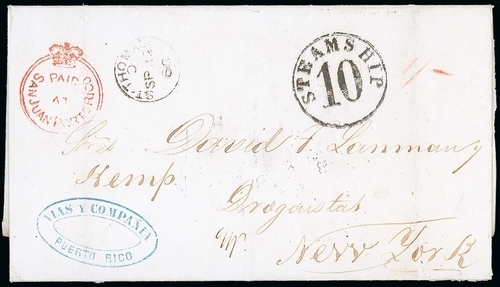 PAID
AT
SAN JUAN PORTO RICO
ST THOMAS
C
SP 12
STEAMSHIP
10
1/-
Sres David T. Lanman y
Kemp
Drogaistas
New York
VIAS Y COMPAÑIA
PUERTO RICO